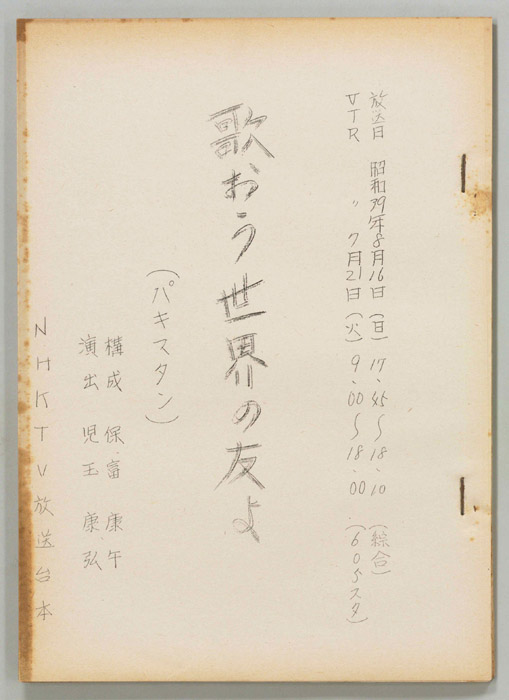 放送日 昭和39年8月16日(日)17.45〜18.10(綜合)
VTR 〃 7月21日(火)9.00〜18.00(605スタ)
歌おう世界の友よ
(パキスタン)
構成 保富 康午
演出 児玉 康弘
NHKTV放送台本